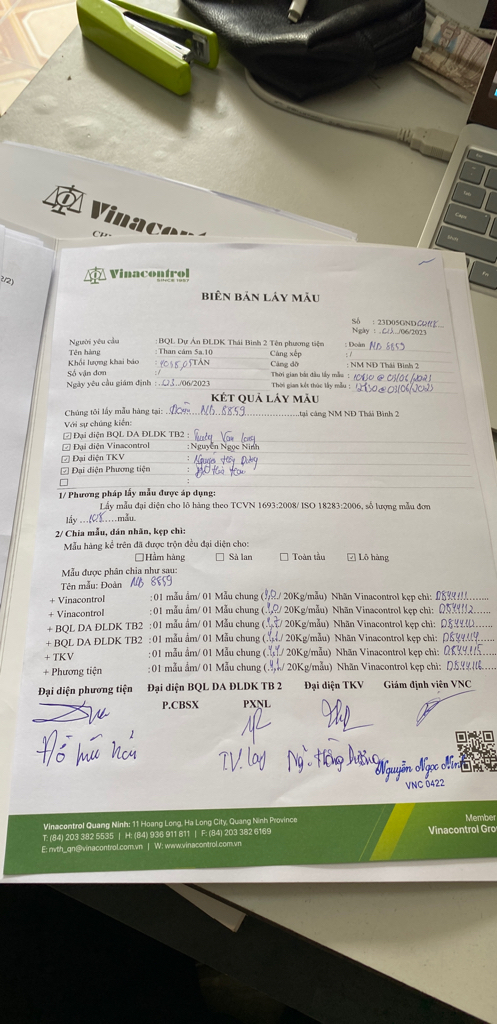 Vinacontrol
Vinacontrol
SINCE 1957
BIÊN BẢN LẤY MẪU
Số : 23D05GND
Ngày : 03/06/2023
Người yêu cầu : BQL Dự Án ĐLDK Thái Bình 2 Tên phương tiện : Đoàn NB 8859
Tên hàng : Than cám 5a.10 Cảng xếp : /
Khối lượng khai báo : TẤN Cảng dỡ : NM NĐ Thái Bình 2
Số vận đơn : / Thời gian bắt đầu lấy mẫu : 10h30 @ 03/06/2023
Ngày yêu cầu giám định : 03/06/2023 Thời gian kết thúc lấy mẫu : @ 03/06/2023
KẾT QUẢ LẤY MẪU
Chúng tôi lấy mẫu hàng tại: Đoàn NB 8859 tại cảng NM NĐ Thái Bình 2
Với sự chứng kiến:
Đại diện BQL DA ĐLDK TB2 : Văn
Đại diện Vinacontrol : Nguyễn Ngọc Ninh
Đại diện TKV : Nguyễn Dương
Đại diện Phương tiện :
1/ Phương pháp lấy mẫu được áp dụng:
Lấy mẫu đại diện cho lô hàng theo TCVN 1693:2008/ ISO 18283:2006, số lượng mẫu đơn
lấy mẫu.
2/ Chia mẫu, dán nhãn, kẹp chì:
Mẫu hàng kể trên đã được trộn đều đại diện cho:
Hầm hàng Sà lan Toàn tàu Lô hàng
Mẫu được phân chia như sau:
Tên mẫu: Đoàn NB 8859
+ Vinacontrol : 01 mẫu ẩm/ 01 Mẫu chung ( / 20Kg/mẫu) Nhãn Vinacontrol kẹp chì: 0844111
+ Vinacontrol : 01 mẫu ẩm/ 01 Mẫu chung ( / 20Kg/mẫu) Nhãn Vinacontrol kẹp chì: 0844112
+ BQL DA ĐLDK TB2 : 01 mẫu ẩm/ 01 Mẫu chung ( / 20Kg/mẫu) Nhãn Vinacontrol kẹp chì: 0844113
+ BQL DA ĐLDK TB2 : 01 mẫu ẩm/ 01 Mẫu chung ( / 20Kg/mẫu) Nhãn Vinacontrol kẹp chì: 0844114
+ TKV : 01 mẫu ẩm/ 01 Mẫu chung ( / 20Kg/mẫu) Nhãn Vinacontrol kẹp chì: 0844115
+ Phương tiện : 01 mẫu ẩm/ 01 Mẫu chung ( / 20Kg/mẫu) Nhãn Vinacontrol kẹp chì: 0844116
Đại diện phương tiện Đại diện BQL DA ĐLDK TB 2 Đại diện TKV Giám định viên VNC
P.CBSX PXNL
Nguyễn Ngọc Ninh
VNC 0422
Vinacontrol Quang Ninh: 11 Hoang Long, Ha Long City, Quang Ninh Province
T: (84) 203 382 5535 | H: (84) 936 911 811 | F: (84) 203 382 6169
E: nvth_qn@vinacontrol.com.vn | W: www.vinacontrol.com.vn
Member
Vinacontrol Gro